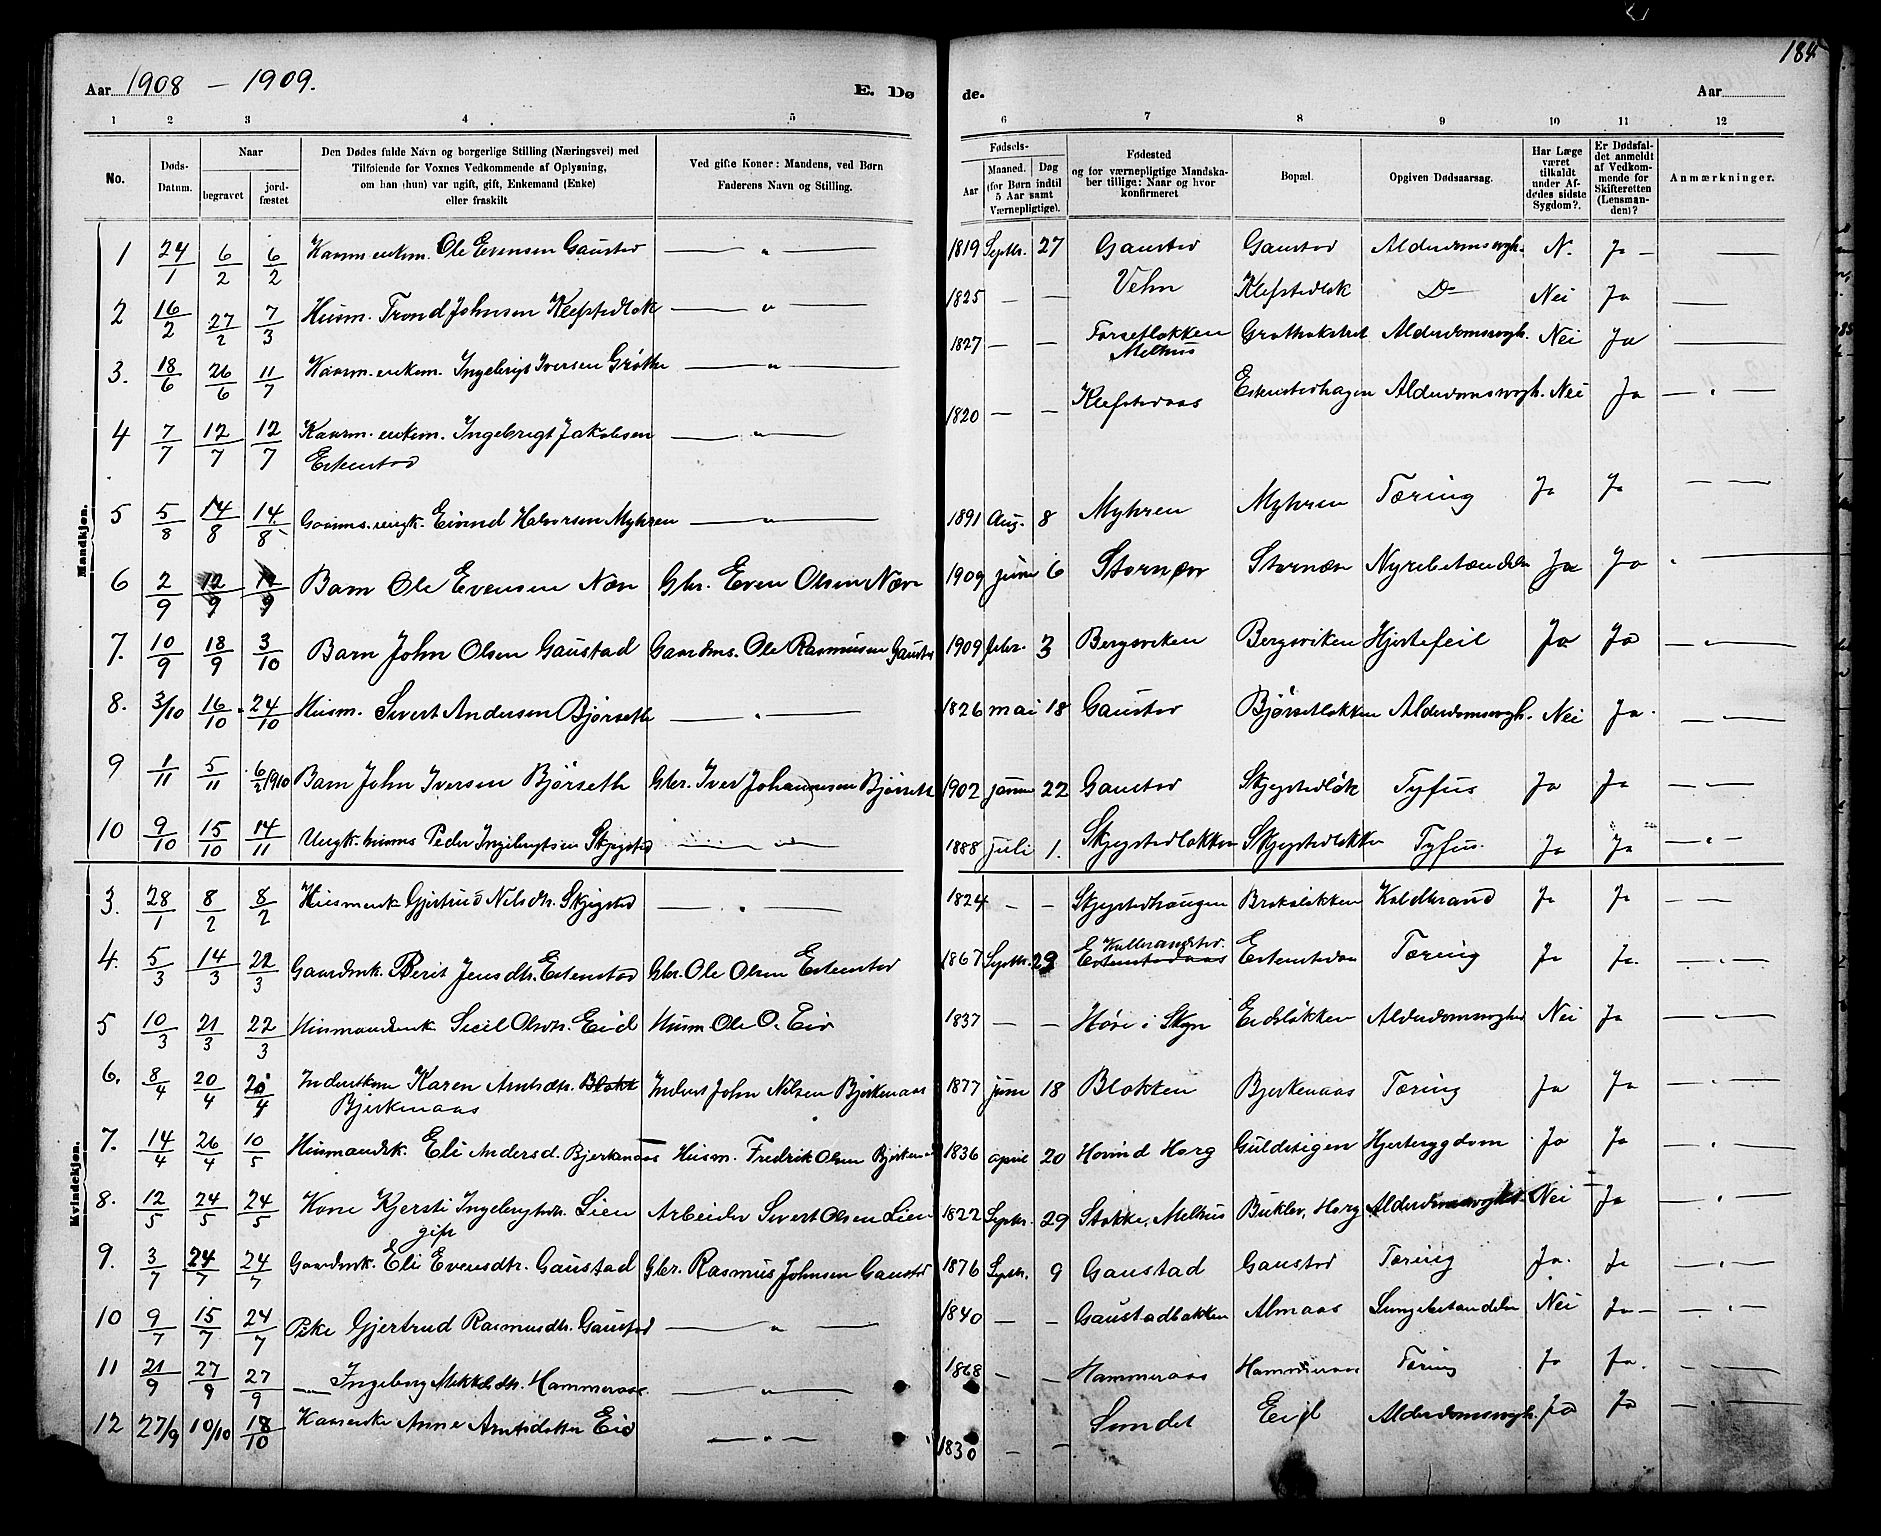 184
Aar 1908 – 1909. E. Dø de. Aar
1 2 3 4 5 6 7 8 9 10 11 12
No. Døds-Datum. Naar begravet jordfæstet Den Dødes fulde Navn og borgerlige Stilling (Næringsvei) med Tilføiende for Voxnes Vedkommende af Oplysning, om han (hun) var ugift, gift, Enkemand (Enke) eller fraskilt Ved gifte Koner: Mandens, ved Børn Faderens Navn og Stilling. Fødsels- Aar Maaned. Dag (for Børn indtil 5 Aar samt Værnepligtige). Fødested og for værnepligtige Mandskaber tillige: Naar og hvor konfirmeret Bopæl. Opgiven Dødsaarsag. Har Læge været tilkaldt under Afdødes sidste Sygdom?. Er Dødsfaldet anmeldt af Vedkommende for Skifteretten (Lensmanden)? Anmærkninger.
Mandkjøn.
1 24/1 6/2 6/2 Ole Evensen Gaustad — " — 1819 Septr. 27 Gaustad Gaustad Alderdomssvagh. N. Ja —
2 16/2 27/2 7/3 Husm. Trond Johnsen Klefstadløk — " — 1825 — — Vehn Klefstadløk D— Nei Ja —
3. 18/6 26/6 11/7 Ingebrigt Iversen Grøtte — " — 1827 — — Forsetløkken Melhus Alderdomssvagh. Nei Ja —
4 7/7 12/7 12/7 Ingebrigt Jakobsen Estenstad — " — 1820 — — Klefstadaas Estenstadhagen Alderdomssvagh. Nei Ja — " —
5 5/8 14/8 14/8 Eivind Halvorsen Myhren — " — 1891 Aug. 8 Myhren Myhren Tæring Ja Ja — —
6 2/9 12/9 12/9 Barn Ole Evensen Næv Gbr. Even Olsen Næv 1909 juni 6 Stornæv Stornæv Nyrebetændelse Ja Ja " —
7. 10/9 18/9 3/10 Barn John Olsen Gaustad Gaardms. Ole Rasmusen Gaustad 1909 febr. 3 Bergsviken Bergsviken Hjertefeil Ja Ja — " —
8. 3/10 16/10 24/10 Husm. Sivert Andersen Bjørseth — " — 1826 mai 18 Gaustad Bjørsetløkken Alderdomssvagh. Nei Ja. — " —
9 1/11 5/11 6/2 1910 Barn John Iversen Bjørseth Gbr. Iver Johannesen Bjørseth 1902 22 Gaustad Skjegstadløk Tyfus Ja Ja — " —
10 9/10 15/10 14/11 Ungk. Peder Ingebrigtsen Skjegstad — " — 1888 juli 1. Skjegstadløkken Skjegstadløkken Tyfus. Ja Ja — " —
Kvindekjøn.
3. 28/1 8/2 8/2 Gjertrud Nilsdtr. Skjegstad — " — 1824 — — Skjegstadhaugen Koldbrand Ja Ja — —
4. 5/3 14/3 22/3 Gaardmk. Berit Jensdtr. Estenstad Gbr. Ole Olsen Estenstad 1867 Septr. 23 Estenstadaas Tæring Ja Ja. — " —
5 10/3 21/3 22/3 Husmandsk Sicil Olsdtr. Eid Husm. Ole O. Eid 1837 — — i Skgn Eidsløkken Alderdomssvaghed Nei Ja — " —
6. 8/4 20/4 Karen Arntsdtr. Blokk Inderst John Nilsen Bjerkenaas 1877 juni 18 Blokken Bjerkenaas Tæring Ja Ja — " —
Bjerkenaas
7. 14/4 26/4 10/5 Husmandsk. Eli Andersd. Bjerkenaas Husm. Fredrik Olsen Bjerkenaas 1836 april 20 Hovind Horg Guldstigen Hjertesygdom Ja Ja — " —
8. 12/5 24/5 24/5 Kone Kjersti Ingebrigtsdtr. Lien Arbeider Sivert Olsen Lien 1822 Septr. 29 Stokke, Melhus Horg Alderdomssvaghed. Nei Ja — " —
gift
9. 3/7 24/7 24/7 Gaardmk. Eli Evensdtr. Gaustad Gbr. Rasmus Johnsen Gaustad 1876 Septr. 9 Gaustad Gaustad Tæring Ja. Ja — " —
10 9/7 15/7 24/7 Pike Gjertrud Rasmusdtr. Gaustad — " — 1840 — — Gaustadbakken Almaas Lungebetændelse Nei Ja — — " —
11 21/9 27/9 27/9 — " — Ingeborg Mikkelsdtr. Hammeraas — " — 1868 — — Hammeraas Hammeraas Tæring Ja Ja. — " —
12 27/9 10/10 18/10 Anne Arntsdatter Eid — " — 1830 — — Sundet Eid Alderdomssvagh. Ja Ja — " —